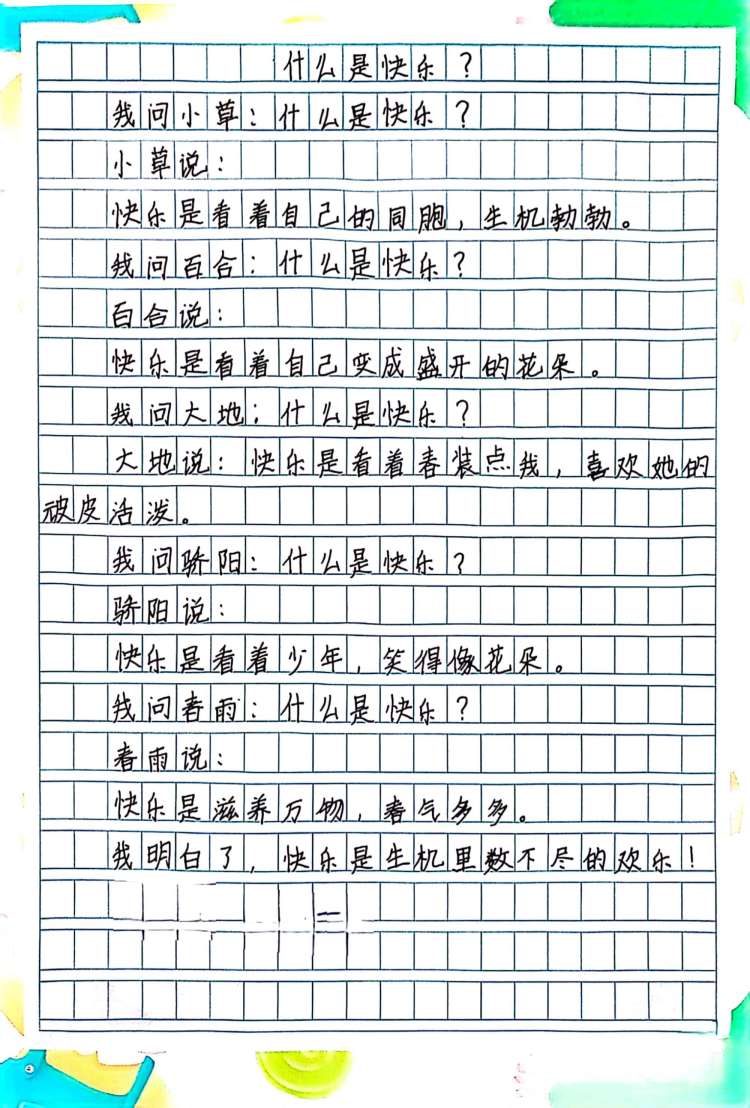 什么是快乐？
我问小草：什么是快乐？
小草说：
快乐是看着自己的同胞，生机勃勃。
我问百合：什么是快乐？
百合说：
快乐是看着自己变成盛开的花朵。
我问大地：什么是快乐？
大地说：快乐是看着春装点我，喜欢她的
顽皮活泼。
我问骄阳：什么是快乐？
骄阳说：
快乐是看着少年，笑得像花朵。
我问春雨：什么是快乐？
春雨说：
快乐是滋养万物，春气多多。
我明白了，快乐是生机里数不尽的欢乐！